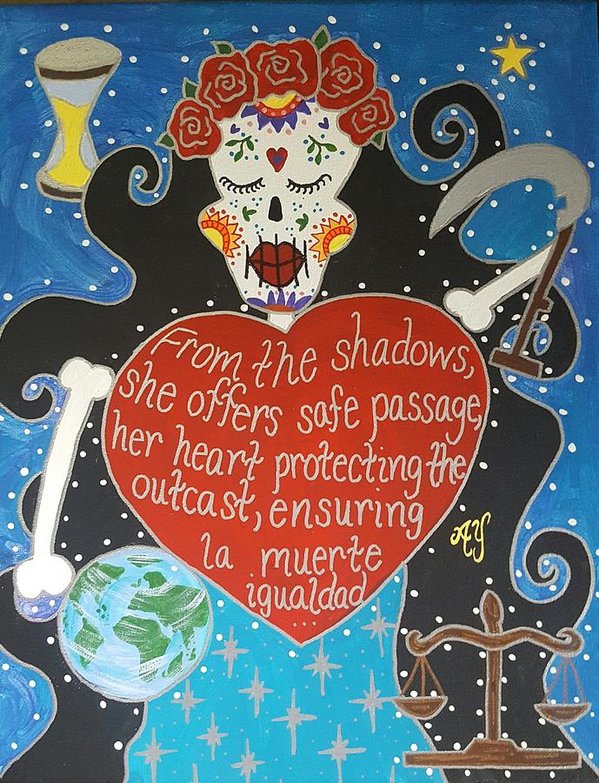 From the shadows,
she offers safe passage,
her heart protecting the
outcast, ensuring
la muerte
igualdad
...
AY